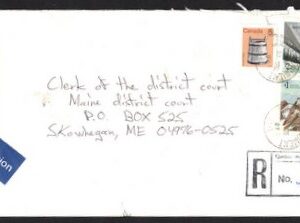 Canada 5
Clerk of the district court
Maine district court
P.O. BOX 525
Skowhegan, ME 04976-0525
R
No.